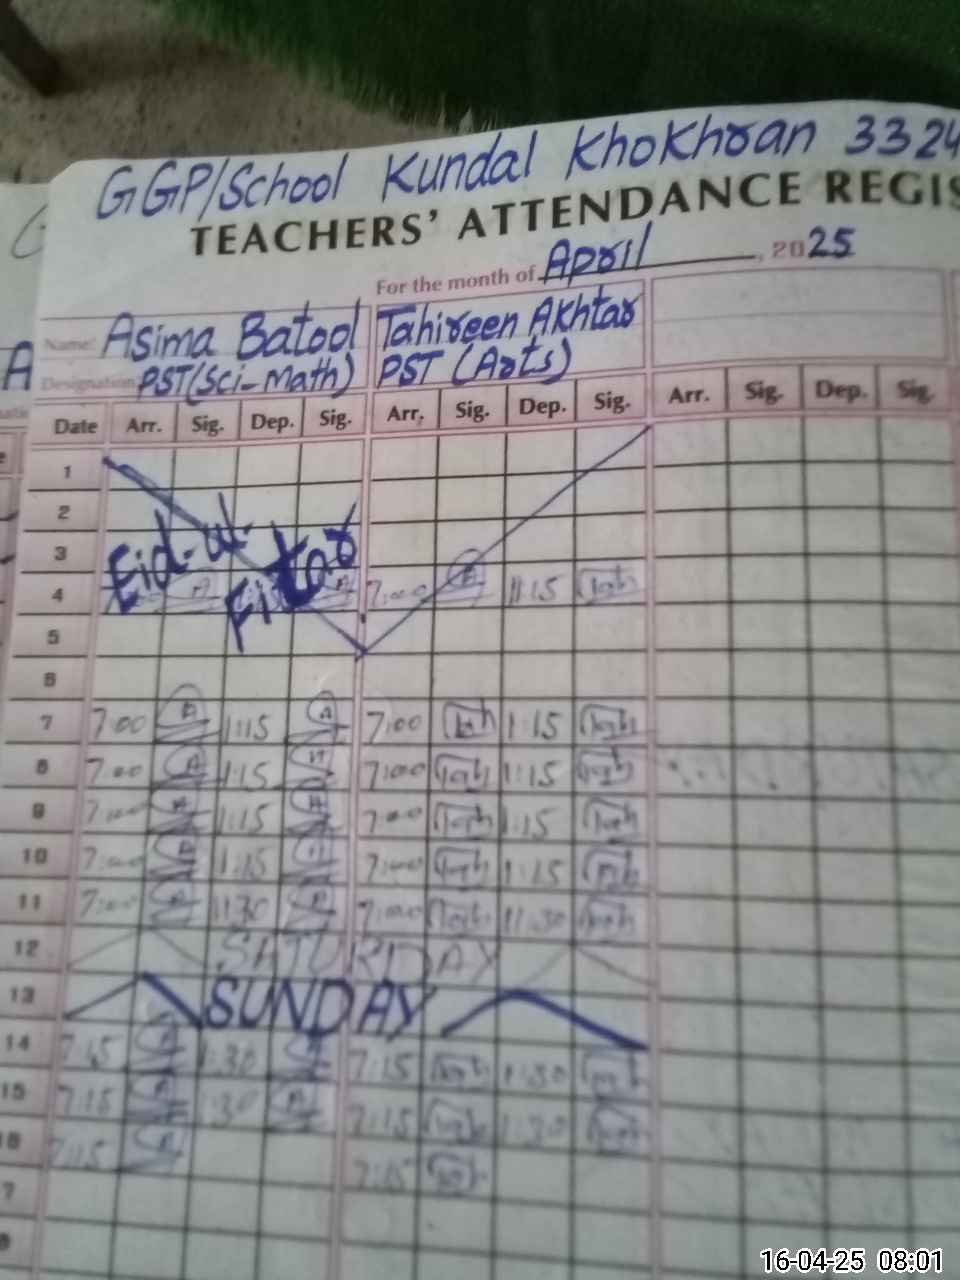 GGP/School Kundal Khokhran 3324
TEACHERS' ATTENDANCE REGIS
For the month of April, 2025
Name: Asima Batool Tahireen Akhtar
Designation PST(Sci-Math) PST (Arts)
Date Arr. Sig. Dep. Sig. Arr. Sig. Dep. Sig. Arr. Sig. Dep. Sig.
1
2
3
Eid-ul-
Fitar
4 7:00 11:15
5
6
7 7:00 1:15 7:00 1:15
8 7:00 1:15 7:00 1:15
9 7:00 1:15 7:00 1:15
10 7:00 1:15 7:00 1:15
11 7:00 11:30 7:00 11:30
12 SATURDAY
13 SUNDAY
14 1:30 7:15 1:30
15 7:15 1:30 7:15 1:30
16 7:15 7:15
7
8
16-04-25 08:01